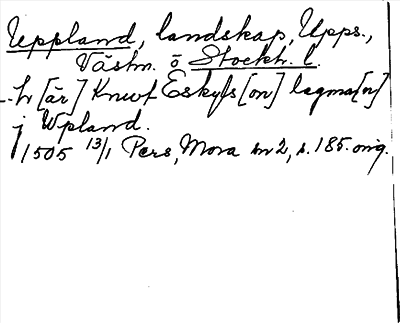 Uppland, landskap, Upps.,
Västm. o Stockh. l.
- - h [är] Knwt Eskyls[on] lagma[n]
j Wpland.
1505 13/1 Pers, Mora nr 2, s. 185. orig.